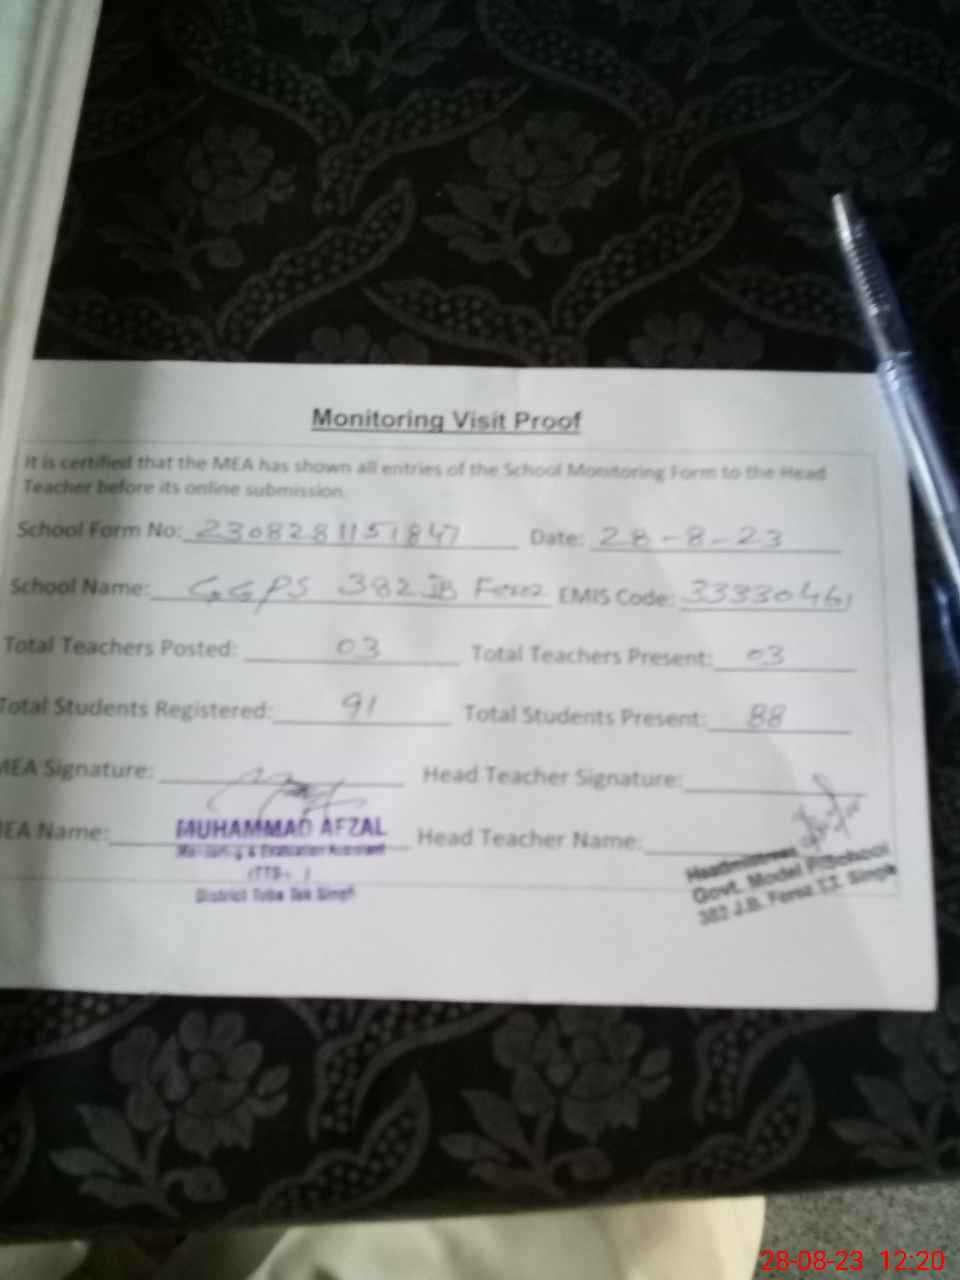 Monitoring Visit Proof
It is certified that the MEA has shown all entries of the School Monitoring Form to the Head
Teacher before its online submission.
School Form No: 2308281151847 Date: 28-8-23
School Name: GGPS 382 JB Feroz EMIS Code: 33330461
Total Teachers Posted: 03 Total Teachers Present: 03
Total Students Registered: 91 Total Students Present: 88
MEA Signature: Head Teacher Signature:
MEA Name: MUHAMMAD AFZAL Head Teacher Name:
Monitoring & Evaluation Assistant
District Toba Tek Singh
Headmistress
Govt. Model P/School
382 J.B. Feroz T.T. Singh
28-08-23 12:20